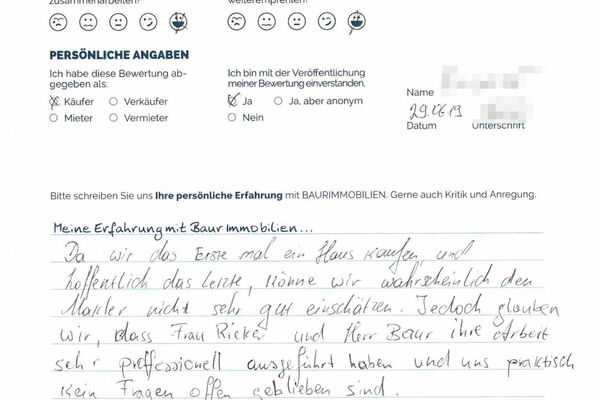 zusammenarbeiten?
weiterempfehlen?
PERSÖNLICHE ANGABEN
Ich habe diese Bewertung ab-
gegeben als:
Käufer Verkäufer
Mieter Vermieter
Ich bin mit der Veröffentlichung
meiner Bewertung einverstanden.
Ja Ja, aber anonym
Nein
Name
29.06.19
Datum Unterschrift
Bitte schreiben Sie uns Ihre persönliche Erfahrung mit BAURIMMOBILIEN. Gerne auch Kritik und Anregung.
Meine Erfahrung mit Baur Immobilien...
Da wir das Erste mal ein Haus kaufen, und
hoffentlich das letzte, könne wir wahrscheinlich den
Makler nicht sehr gut einschätzen. Jedoch glauben
wir, dass Frau Rieker und Herr Baur ihre Arbeit
sehr proffessionell ausgeführt haben und uns praktisch
kein Fragen offen geblieben sind.